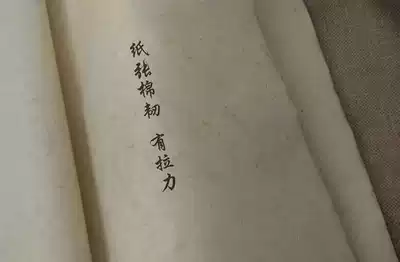 纸张棉韧 有拉力